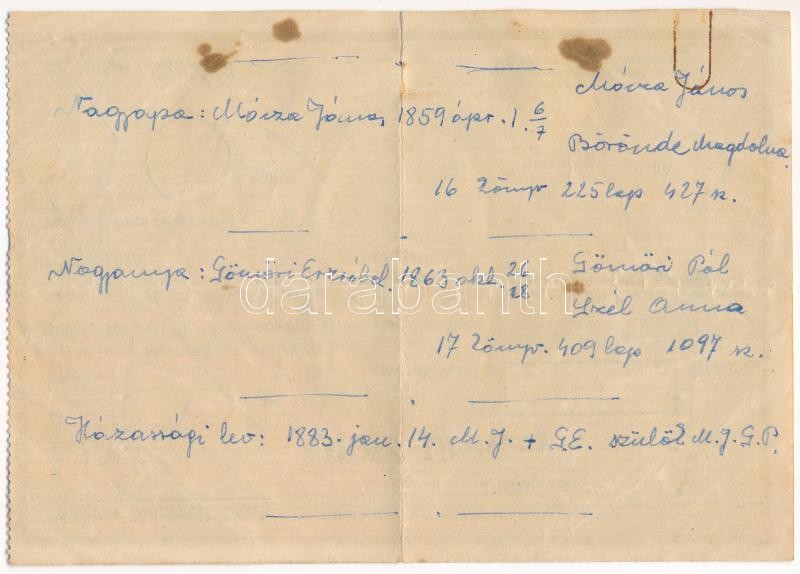 Nagyapa: Mócza János 1859 ápr. 1. 6/7 Mócza János
Börönde Magdolna.
16 Könyv 225 lap 427 sz.
Nagyanya: Gömöri Erzsébet. 1863 okt 26/28 Gömöri Pál
Szél Anna
17 Könyv. 409 lap 1097 sz.
darabanth
Házassági lev: 1883. jan. 14. M. J. + G.E. szülők M. J. G. P.